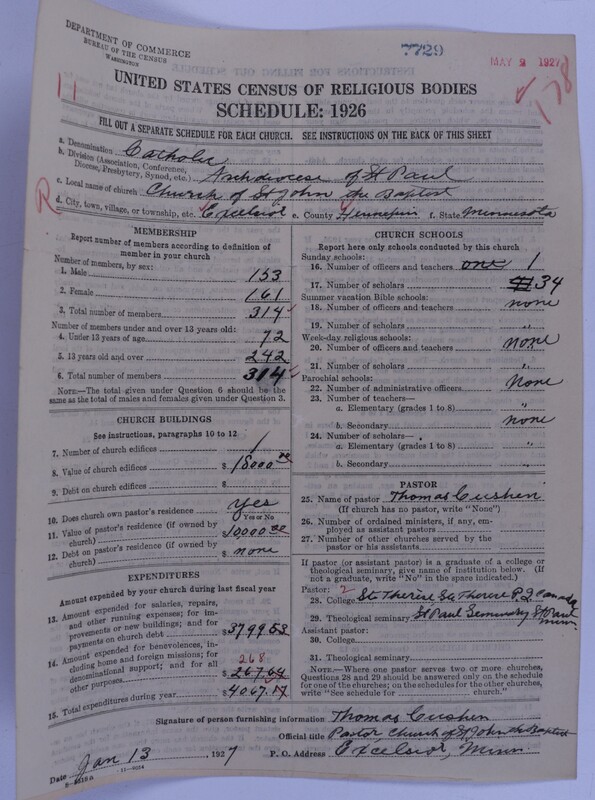 DEPARTMENT OF COMMERCE
BUREAU OF THE CENSUS
WASHINGTON
7729
MAY 2 1927
11
178
UNITED STATES CENSUS OF RELIGIOUS BODIES
SCHEDULE: 1926
FILL OUT A SEPARATE SCHEDULE FOR EACH CHURCH. SEE INSTRUCTIONS ON THE BACK OF THIS SHEET
a. Denomination Catholic
b. Division (Association, Conference, Diocese, Presbytery, Synod, etc.) Archdiocese of St Paul
c. Local name of church Church of St John the Baptist
R
d. City, town, village, or township, etc. Excelsior e. County Hennepin f. State Minnesota
MEMBERSHIP
Report number of members according to definition of
member in your church
Number of members, by sex:
1. Male 153
2. Female 161
3. Total number of members 314
Number of members under and over 13 years old:
4. Under 13 years of age 72
5. 13 years old and over 242
6. Total number of members 314
NOTE.—The total given under Question 6 should be
the same as the total of males and females given under Question 3.
CHURCH BUILDINGS
See instructions, paragraphs 10 to 12
7. Number of church edifices 1
8. Value of church edifices $ 18000 00
9. Debt on church edifices $
10. Does church own pastor's residence yes
Yes or No
11. Value of pastor's residence (if owned by
church) $ 10000 00
12. Debt on pastor's residence (if owned by
church) $ none
EXPENDITURES
Amount expended by your church during last fiscal year
13. Amount expended for salaries, repairs,
and other running expenses; for im-
provements or new buildings; and for
payments on church debt $ 3799 53
14. Amount expended for benevolences, in-
cluding home and foreign missions; for
denominational support; and for all
other purposes $ 267.64
268
15. Total expenditures during year $ 4067.17
CHURCH SCHOOLS
Report here only schools conducted by this church
Sunday schools:
16. Number of officers and teachers one 1
17. Number of scholars 34
Summer vacation Bible schools:
18. Number of officers and teachers none
19. Number of scholars "
Week-day religious schools:
20. Number of officers and teachers none
21. Number of scholars "
Parochial schools:
22. Number of administrative officers None
23. Number of teachers—
a. Elementary (grades 1 to 8) "
b. Secondary none
24. Number of scholars—
a. Elementary (grades 1 to 8) "
b. Secondary "
PASTOR
25. Name of pastor Thomas Cushen
(If church has no pastor, write "None")
26. Number of ordained ministers, if any, em-
ployed as assistant pastors
27. Number of other churches served by the
pastor or his assistants
If pastor (or assistant pastor) is a graduate of a college or
theological seminary, give name of institution below. (If
not a graduate, write "No" in the space indicated.)
Pastor: 2
28. College Ste Therese Ste Therese P.Q. Canada
29. Theological seminary St Paul Seminary St Paul Minn.
Assistant pastor:
30. College
31. Theological seminary
NOTE.—Where one pastor serves two or more churches,
Questions 28 and 29 should be answered only on the schedule
for one of the churches; on the schedules for the other churches,
write "See schedule for church."
Signature of person furnishing information Thomas Cushen
Official title Pastor Church of St John the Baptist
Date Jan 13, 1927 P. O. Address Excelsior, Minn.
11—9024